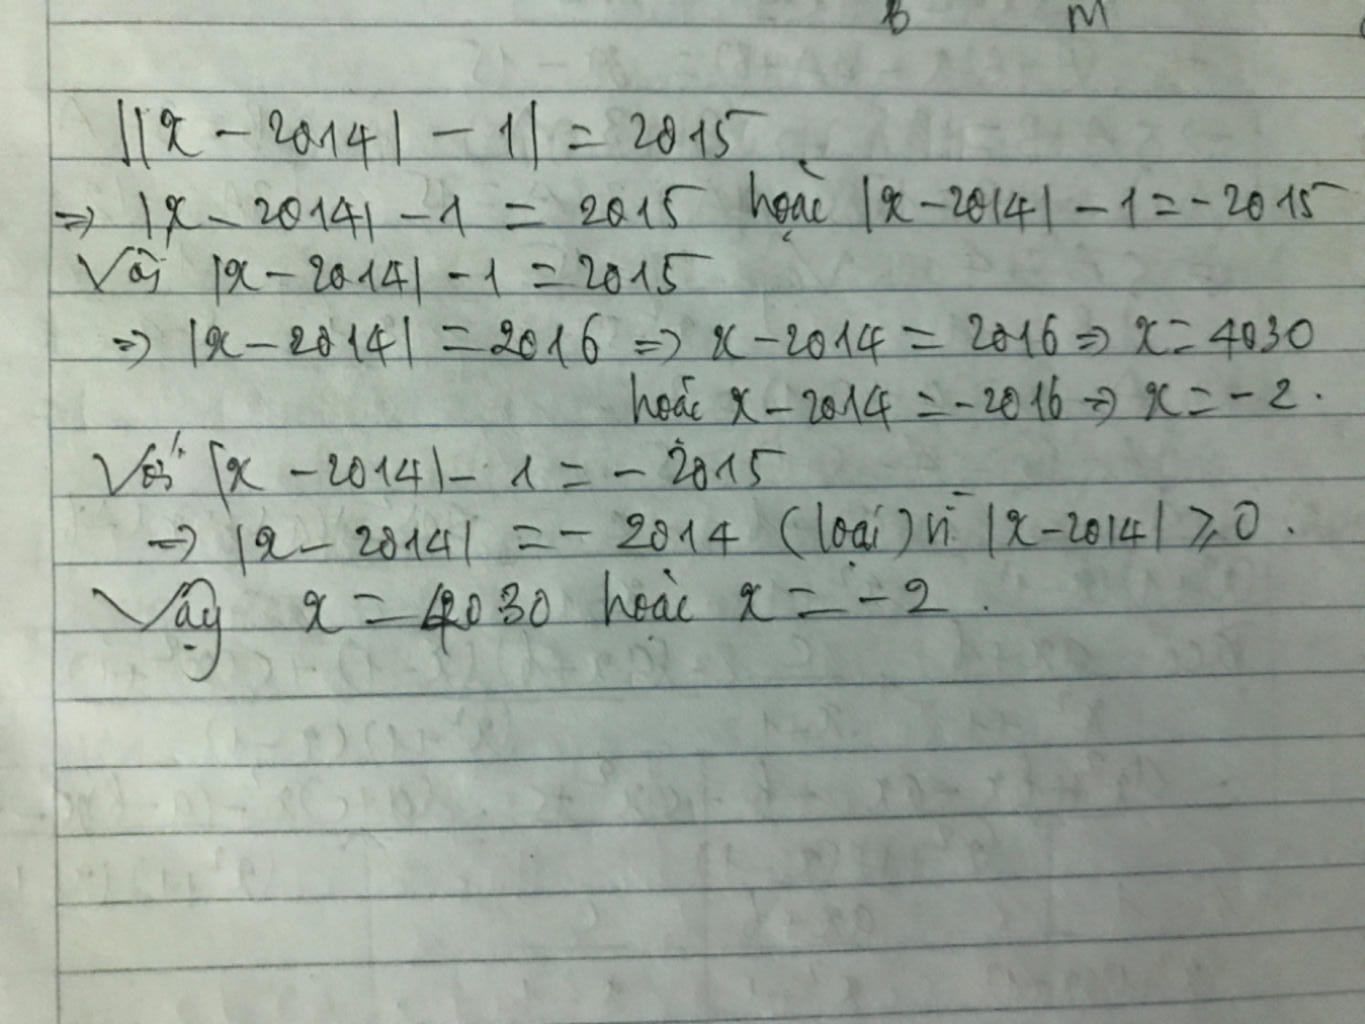 B M
||x - 2014| - 1| = 2015
=> |x - 2014| - 1 = 2015 hoặc |x - 2014| - 1 = - 2015
Với |x - 2014| - 1 = 2015
=> |x - 2014| = 2016 => x - 2014 = 2016 => x = 4030
hoặc x - 2014 = - 2016 => x = - 2 .
Với |x - 2014| - 1 = - 2015
=> |x - 2014| = - 2014 (loại) vì |x - 2014| ⩾ 0 .
Vậy x = 4030 hoặc x = - 2 .